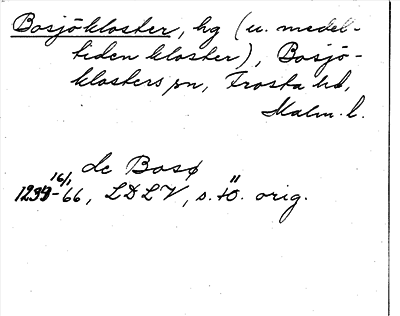 Bosjökloster, hg (u. medel-
tiden kloster), Bosjö-
klosters sn, Frosta hd,
Malm. l.
de Bosø
16/1
-66, LDLV, s. orig.